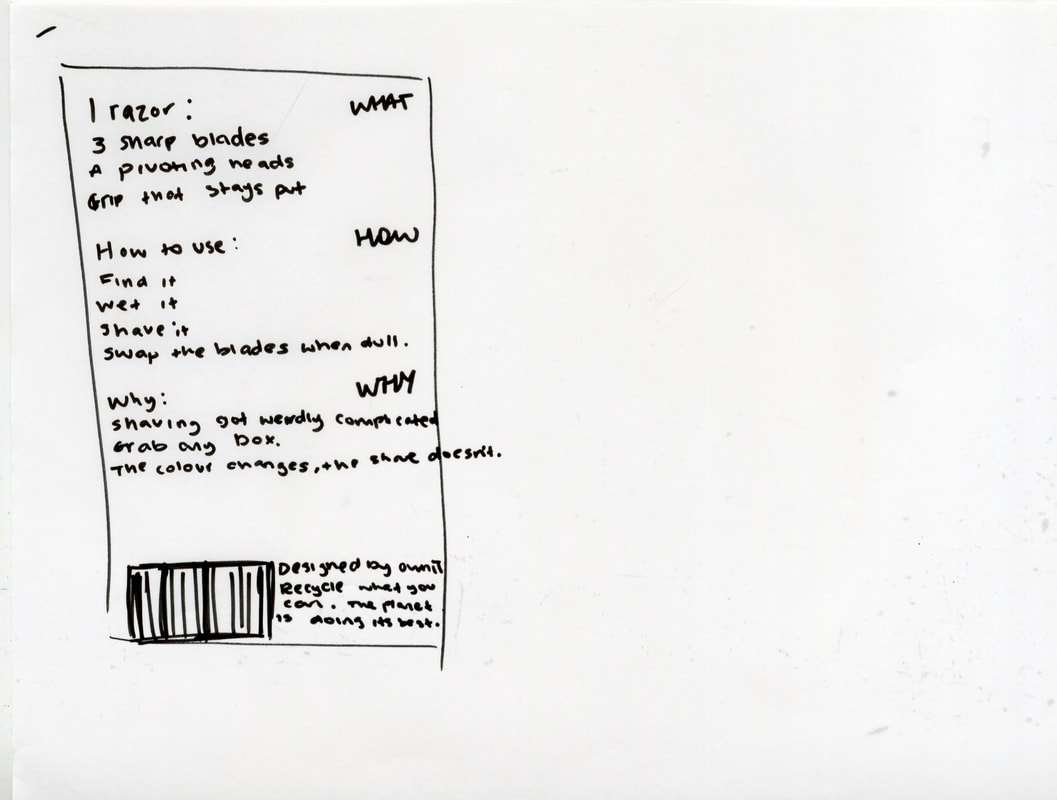 1 razor: WHAT
3 sharp blades
A pivoting heads
Grip that stays put
How to use: HOW
Find it
Wet it
Shave it
Swap the blades when dull.
Why: WHY
Shaving got weirdly complicated
Grab any box.
The colour changes, the shave doesn't.
Designed by
Recycle what you
can. The planet
is doing its best.